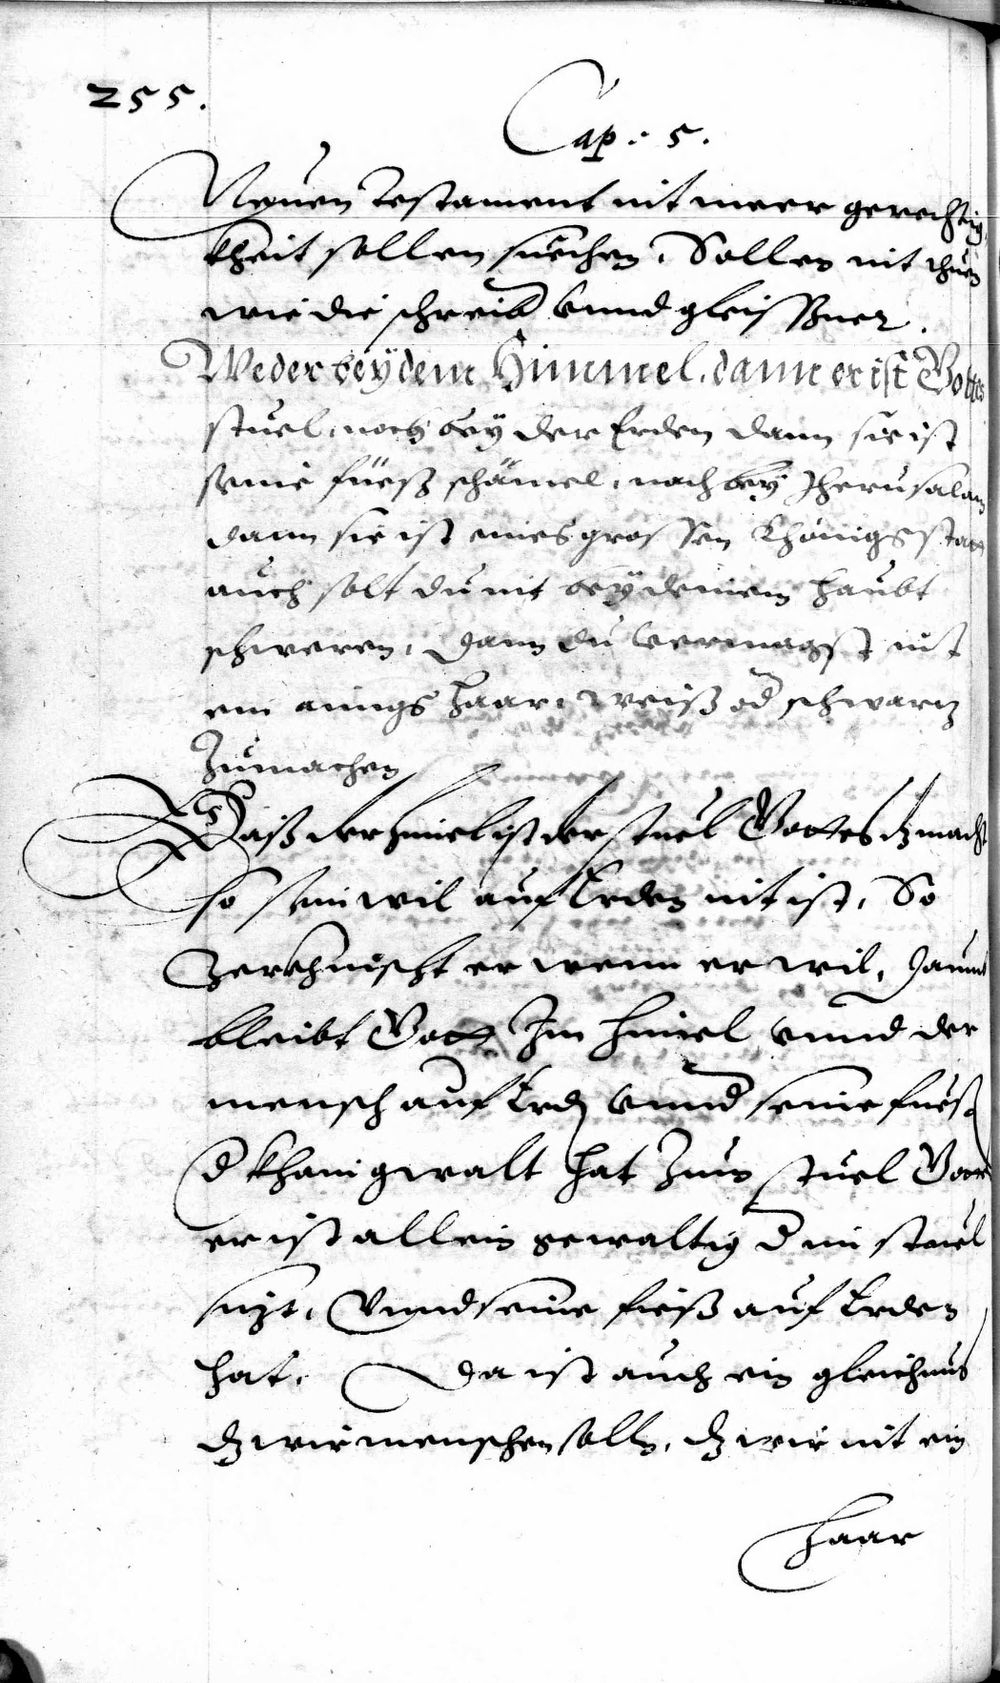 255.
Cap: 5.
Neuen Testament nit meer gerechtig,
kheit sollen suechen. Sollen nit thuen
wie die schreib vnnd gleissner.
Weder bey dem Himmel, dann er ist Gottes
stuel, noch bey der Erden dann sie ist
seine füesz schämel, noch bey Jherusalem
dann sie ist eines grossen Khönigs statt
auch solt du nit bey deinem haubt
schweren, dann du vermagst nit
ein ainigs haar, weiß od schwartz
Zumachen
Daß der himel ist der stuel Gottes dz macht
so sein wil auf Erden nit ist, So
Zerkhnischt er wenn er wil,
bleibt Gott Im himel vnnd der
mensch auf Erdn vnnd seine fueß
d khain gwalt hat Zum stuel Gottes
er ist allein gewaltig d im stuel
sizt, Vnnd seine fieß auf Erden
hat. Da ist auch ein gleichnus
dz wir menschen solln, dz wir nit ein
haar